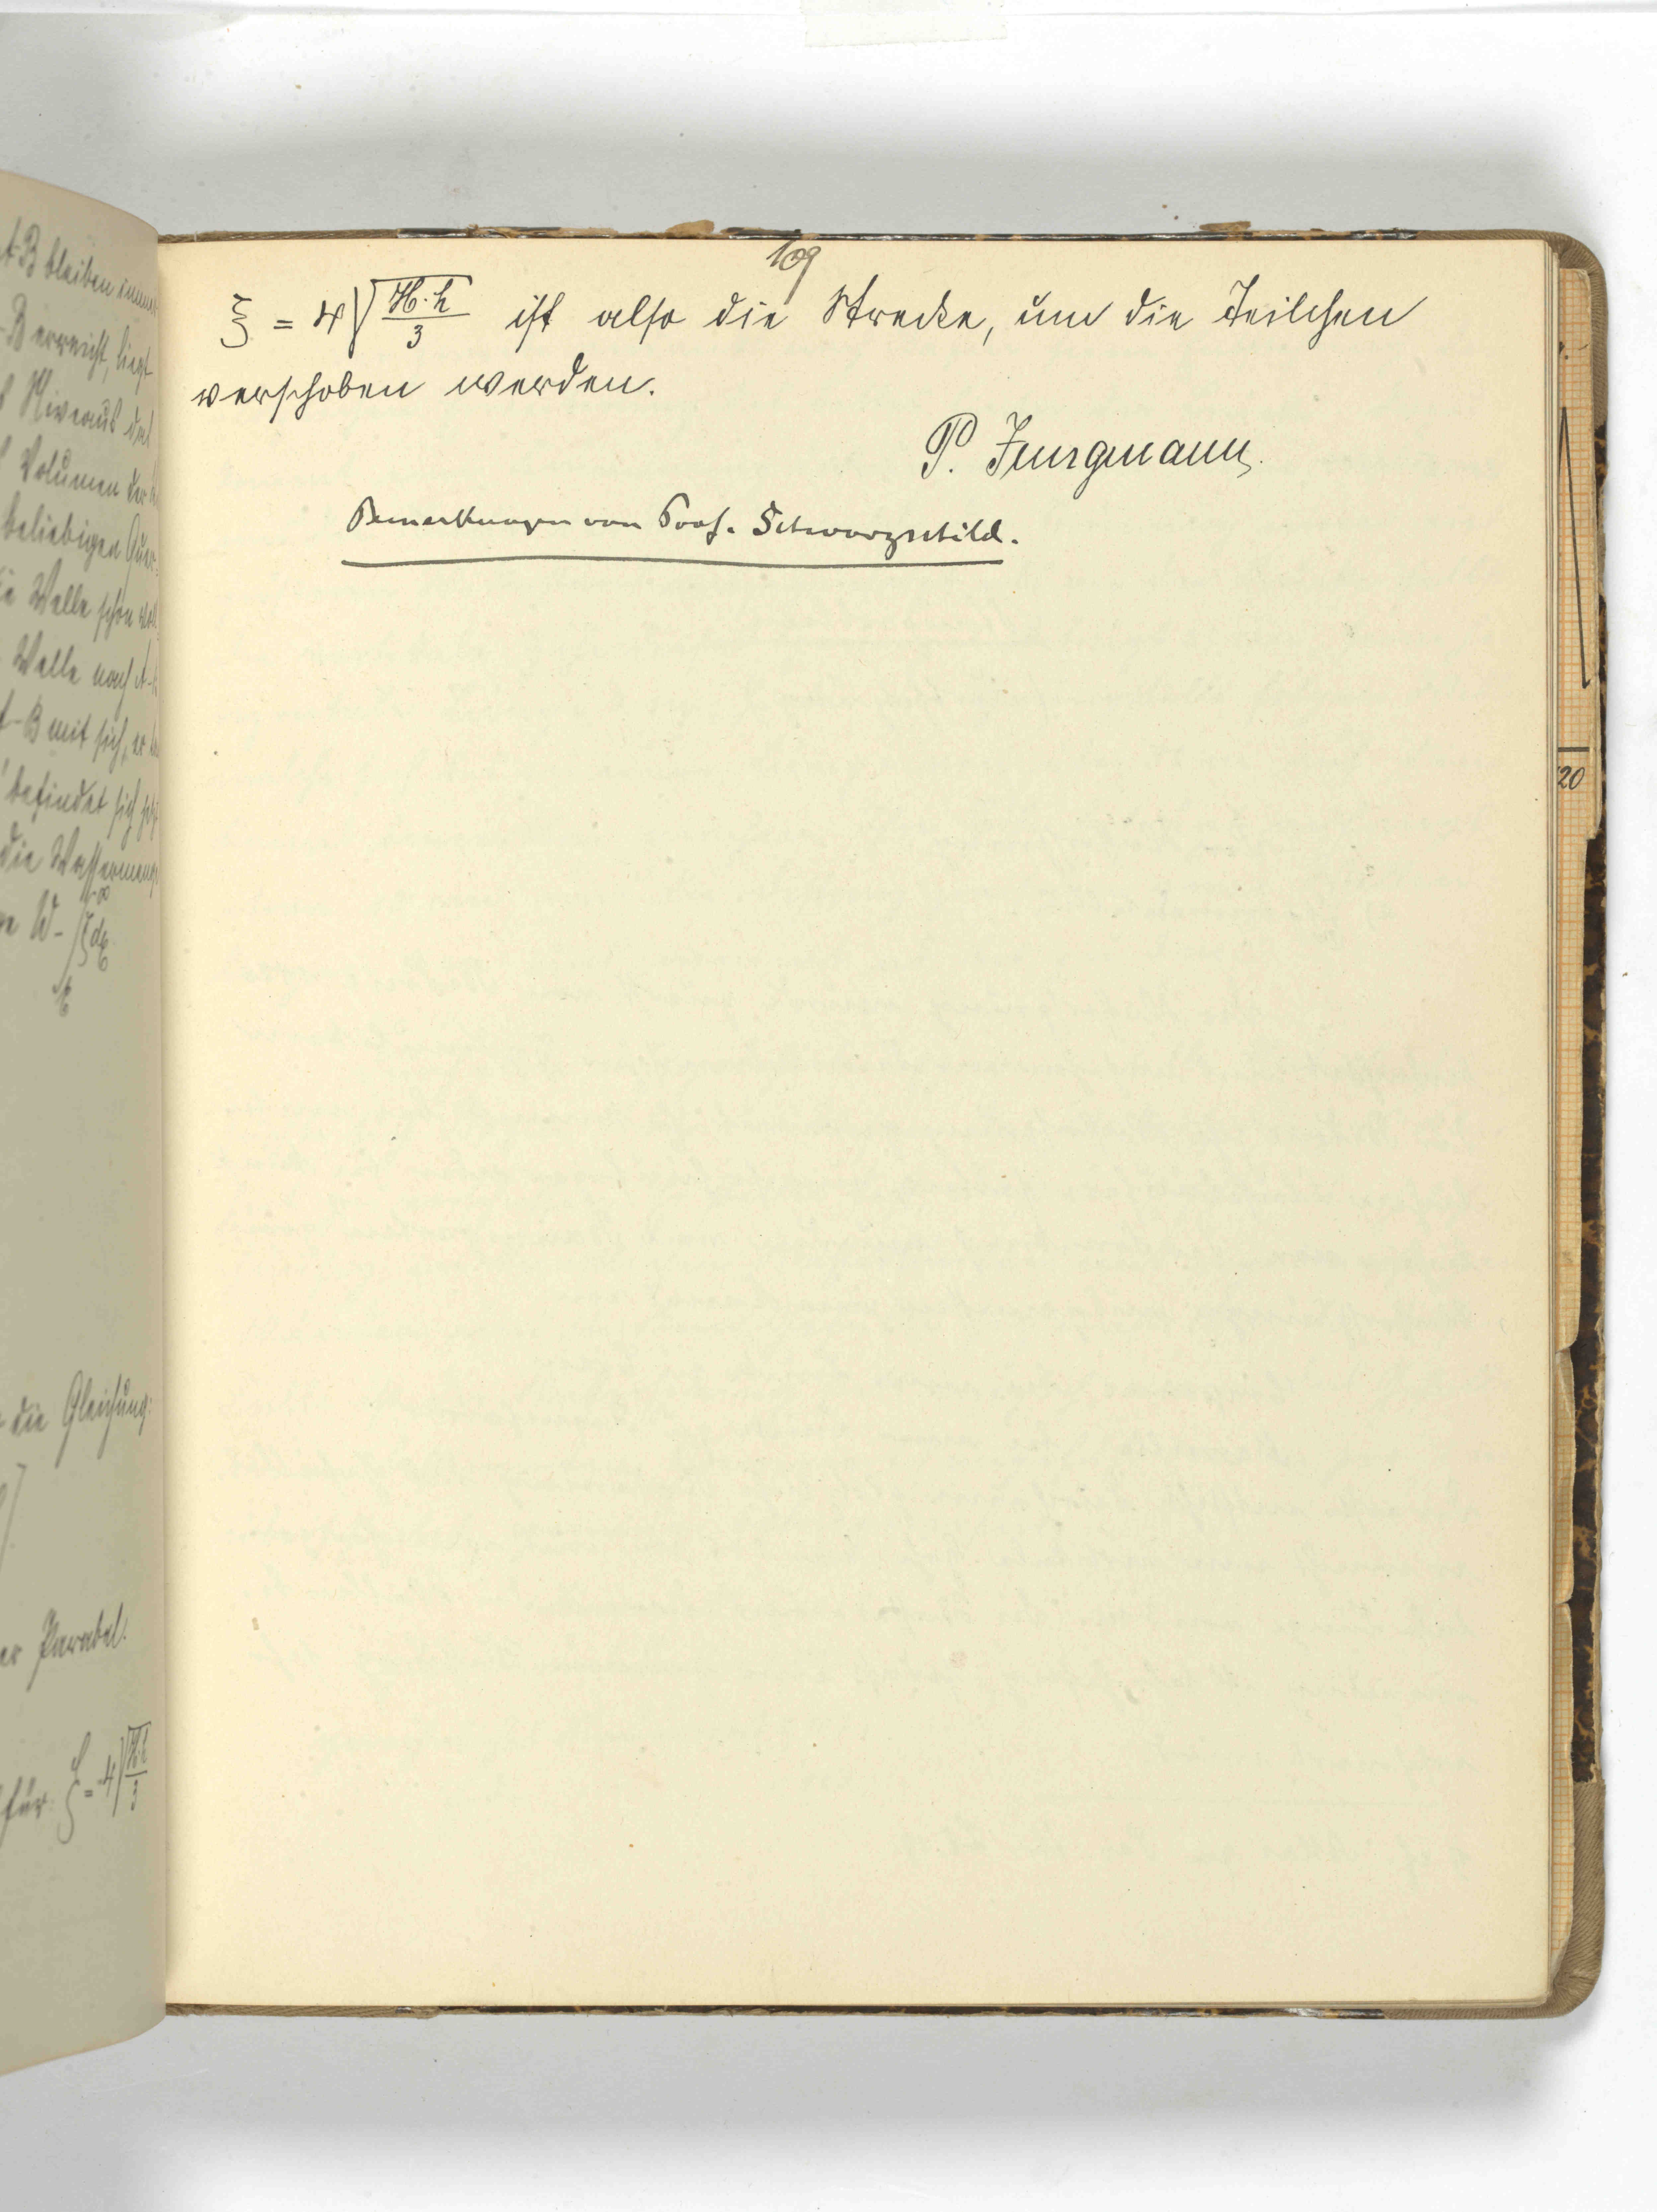 A-B bleiben immer
-B erreicht, liegt
Niveaus das
Volumen der
beliebigen Quer-
Welle schon
Welle nach A-
-B mit sich, er
befindet sich
die Wassermenge
W - ∫ζdξ
die Gleichung:
er Parabel.
für ξ = 4√(H·h/3)
109
ξ = 4√(H·h/3) ist also die Strecke, um die Teilchen
verschoben werden.
P. Jungmann.
Bemerkungen von Prof. Schwarzschild.
20